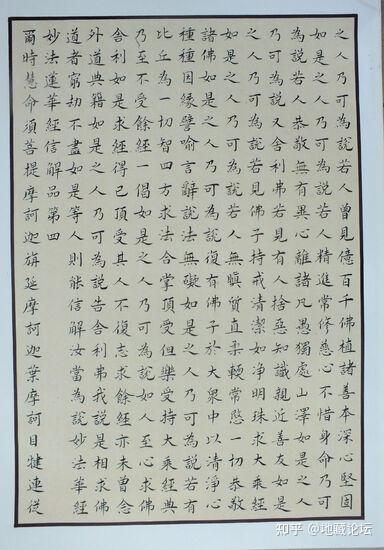 之人乃可為說若人曾見億百千佛植諸善本深心堅固
如是之人乃可為說若人精進常修慈心不惜身命乃可
為說若人恭敬無有異心離諸凡愚獨處山澤如是之人
乃可為說又舍利弗若見有人捨惡知識親近善友如是
之人乃可為說若見佛子持戒清潔如淨明珠求大乘經
如是之人乃可為說若人無瞋質直柔軟常愍一切恭敬
諸佛如是之人乃可為說復有佛子於大眾中以清淨心
種種因緣譬喻言辭說法無礙如是之人乃可為說若有
比丘為一切智四方求法合掌頂受但樂受持大乘經典
乃至不受餘經一偈如是之人乃可為說如人至心求佛
舍利如是求經得已頂受其人不復志求餘經亦未曾念
外道典籍如是之人乃可為說告舍利弗我說是相求佛
道者窮劫不盡如是等人則能信解汝當為說妙法華經
妙法蓮華經信解品第四
爾時慧命須菩提摩訶迦旃延摩訶迦葉摩訶目犍連從
知乎 @地藏论坛